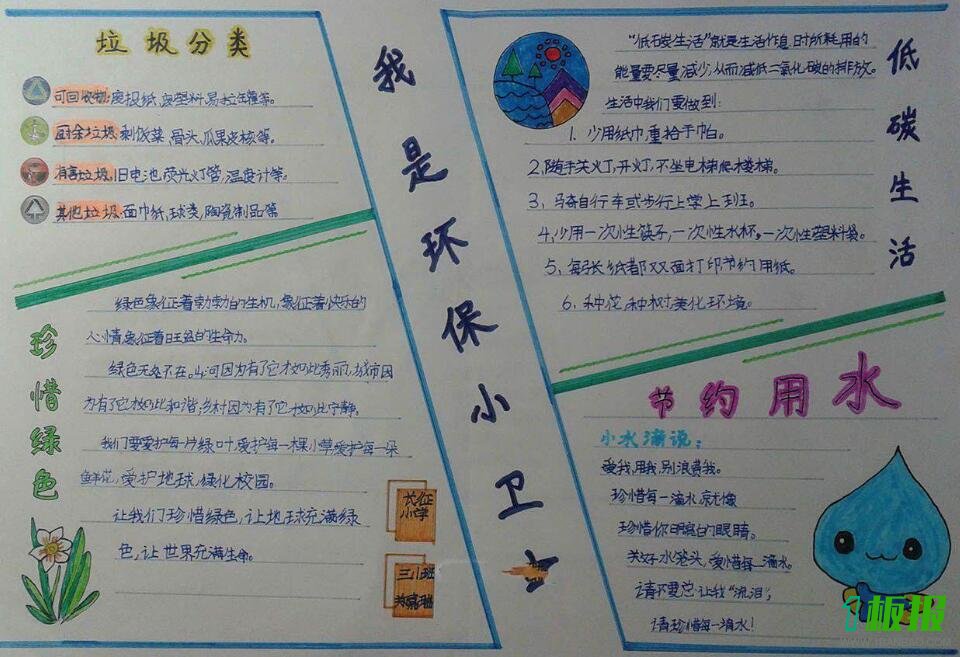 垃圾分类
可回收物:废报纸,废塑料,易拉罐等。
厨余垃圾,剩饭菜,骨头,瓜果皮核等。
有害垃圾,旧电池,荧光灯管,温度计等。
其他垃圾,面巾纸,球类,陶瓷制品等
珍惜绿色
绿色象征着勃勃的生机,象征着快乐的
心情,象征着旺盛的生命力。
绿色无处不在。山河因为有了它才如此秀丽,城市因
为有了它才如此和谐;乡村因为有了它才如此宁静。
我们要爱护每一片绿叶,爱护每一棵小草,爱护每一朵
鲜花,爱护地球,绿化校园。
让我们珍惜绿色,让地球充满绿
色,让世界充满生命。
长征
小学
三小班
我是环保小卫士
低碳生活
"低碳生活"就是生活作息时所耗用的
能量要尽量减少,从而减低二氧化碳的排放。
生活中我们要做到:
1、少用纸巾,重拾手帕。
2、随手关灯,开灯,不坐电梯爬楼梯。
3、骑自行车或步行上学上班。
4、少用一次性筷子,一次性水杯,一次性塑料袋。
5、每张纸都双面打印节约用纸。
6、种花种树美化环境。
节约用水
小水滴说:
爱我,用我,别浪费我。
珍惜每一滴水,就像
珍惜你明亮的眼睛。
关好水龙头,爱惜每一滴水。
请不要总让我"流泪",
请珍惜每一滴水!
板报